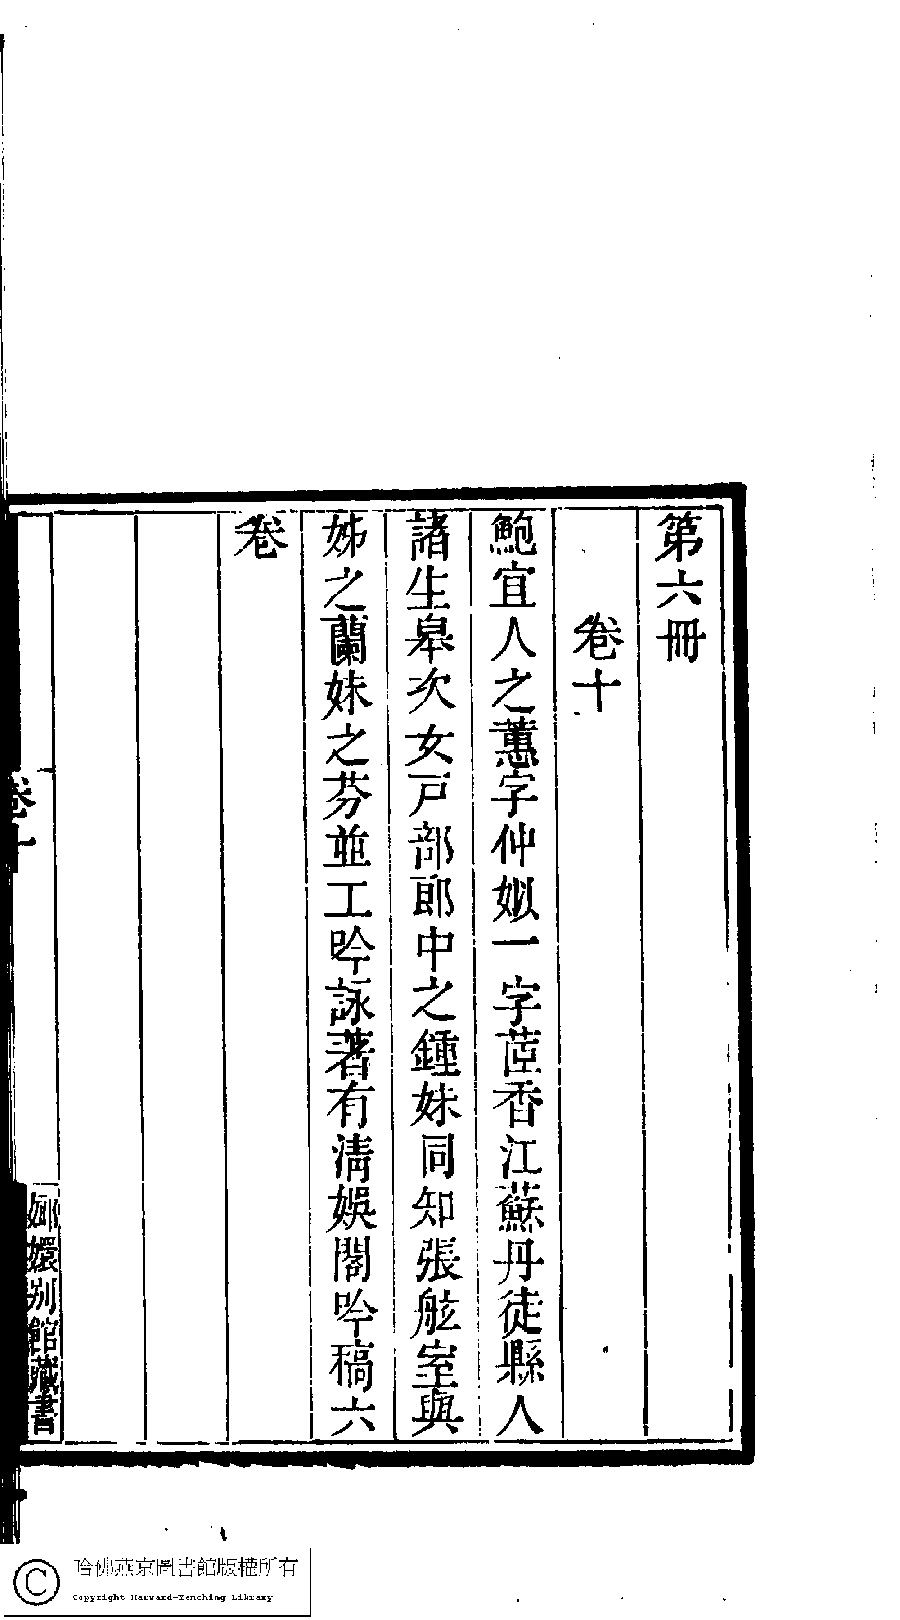 第六冊
卷十
鮑宜人之蕙字仲姒一字茝香江蘇丹徒縣人
諸生皋次女戶部郎中之鍾妹同知張舷室與
姊之蘭妹之芬並工吟詠著有清娛閣吟稿六
卷
卷十
嫏嬛別館藏書
哈佛燕京圖書館版權所有
Copyright Harvard-Yenching Library